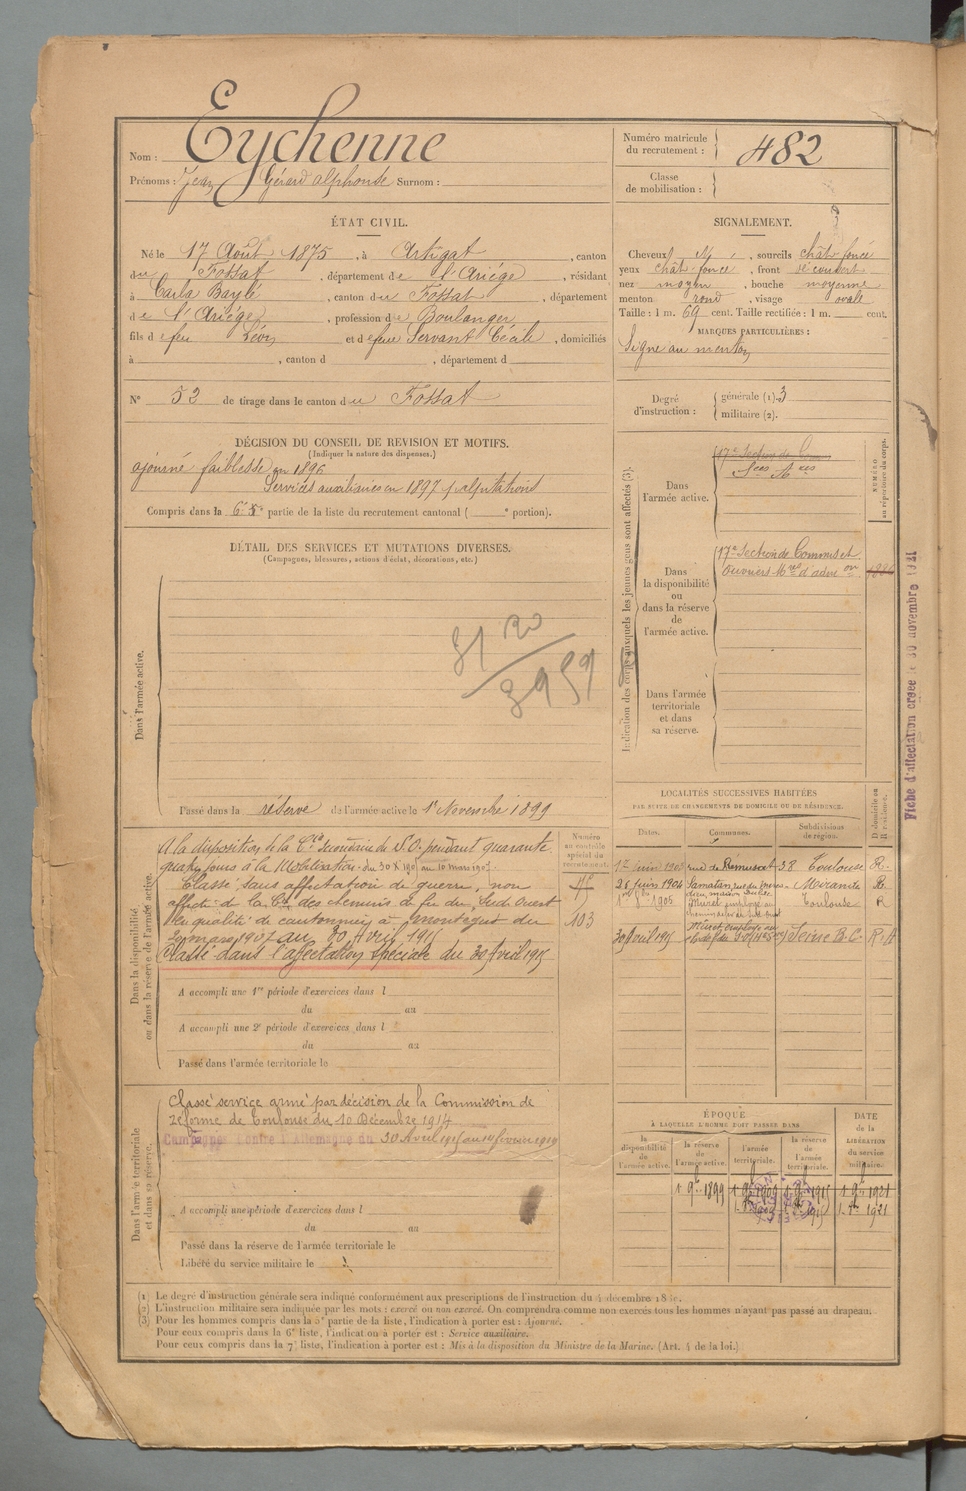 Nom : Eychenne
Prénoms : Jean Gérard alphonse Surnom :
Numéro matricule
du recrutement : 482
Classe
de mobilisation :
ÉTAT CIVIL.
Né le 17 Août 1875, à Artigat, canton
du Fossat, département de l'Ariége, résidant
à Carla Bayle, canton du Fossat, département
de l'Ariége, profession de Boulanger
fils d efeu Lévy et d efeue Servant Cécile, domiciliés
à , canton d , département d
N° 52 de tirage dans le canton du Fossat
SIGNALEMENT.
Cheveux N, sourcils chât foncé
yeux chât foncé, front découvert
nez moyen, bouche moyenne
menton rond, visage ovale
Taille : 1 m. 69 cent. Taille rectifiée : 1 m. cent.
MARQUES PARTICULIÈRES :
Signe au menton
Degré
d'instruction :
générale (1). 3
militaire (2).
DÉCISION DU CONSEIL DE REVISION ET MOTIFS.
(Indiquer la nature des dispenses.)
ajourné faiblesse en 1896
Services auxiliaires en 1897 palpitations
Compris dans la 6e partie de la liste du recrutement cantonal ( e portion).
DÉTAIL DES SERVICES ET MUTATIONS DIVERSES.
(Campagnes, blessures, actions d'éclat, décorations, etc.)
Dans l'armée active.
Passé dans la réserve de l'armée active le 1er Novembre 1899
Indication des corps auxquels les jeunes gens sont affectés (3).
NUMÉRO
au répertoire du corps.
Dans
l'armée active.
17e Section de
Sces Axes
Dans
la disponibilité
ou
dans la réserve
de
l'armée active.
17e Section de Commis et
Ouvriers Mres d'admon
Dans l'armée
territoriale
et dans
sa réserve.
Fiche d'affectation créée le 30 novembre 1921
Dans la disponibilité
ou dans la réserve de l'armée active.
A la disposition de la Cie Secondaire du S.O. pendant quarante
quatre jours à la Mobilisation
Classé sans affectation de guerre, non
affecté de la Cie des chemins de fer du Sud Ouest
en qualité de cantonnier à Montégut du
20 mars 1907 au 30 Avril 1915
Classé dans l'affectation spéciale du 30 Avril 1915
Numéro
au contrôle
spécial du
recrutement.
103
A accompli une 1re période d'exercices dans l
du au
A accompli une 2e période d'exercices dans l
du au
Passé dans l'armée territoriale le
LOCALITÉS SUCCESSIVES HABITÉES
PAR SUITE DE CHANGEMENTS DE DOMICILE OU DE RÉSIDENCE.
Dates. Communes. Subdivisions
de région. D domicile ou
R résidence.
17 juin 1903 rue de Rémusat 38 Toulouse R.
28 juin 1904 Samatan Mirande R.
1905 Muret employé au Toulouse R
30 Avril 1915 Seine B.C. R.
Dans l'armée territoriale
et dans sa réserve.
Classé service armé par décision de la Commission de
réforme de Toulouse du 10 Décembre 1914
Campagnes contre l'Allemagne du 30 Avril 1915 au 10 février 1919
A accompli une période d'exercices dans l
du au
Passé dans la réserve de l'armée territoriale le
Libéré du service militaire le
ÉPOQUE
À LAQUELLE L'HOMME DOIT PASSER DANS
la
disponibilité
de
l'armée active.
la réserve
de
l'armée active.
l'armée
territoriale.
la réserve
de
l'armée
territoriale.
DATE
de la
LIBÉRATION
du service
militaire.
1 9b 1899 1 9b 1909 1 9b 1915 1 9b 1921
(1) Le degré d'instruction générale sera indiqué conformément aux prescriptions de l'instruction du 4 décembre
(2) L'instruction militaire sera indiquée par les mots : exercé ou non exercé. On comprendra comme non exercés tous les hommes n'ayant pas passé au drapeau.
(3) Pour les hommes compris dans la 5e partie de la liste, l'indication à porter est : Ajourné.
Pour ceux compris dans la 6e liste, l'indication à porter est : Service auxiliaire.
Pour ceux compris dans la 7e liste, l'indication à porter est : Mis à la disposition du Ministre de la Marine. (Art. 4 de la loi.)